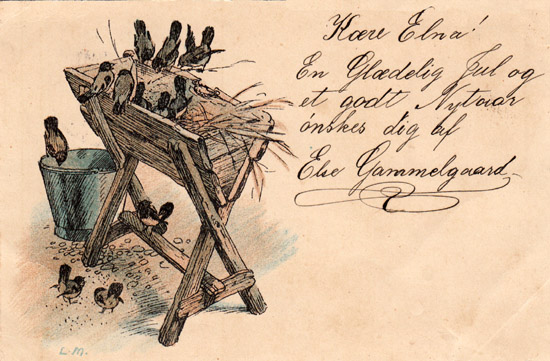 Kære Elna!
En Glædelig Jul og
et godt Nytaar
ønskes dig af
Else Gammelgaard.
L.M.